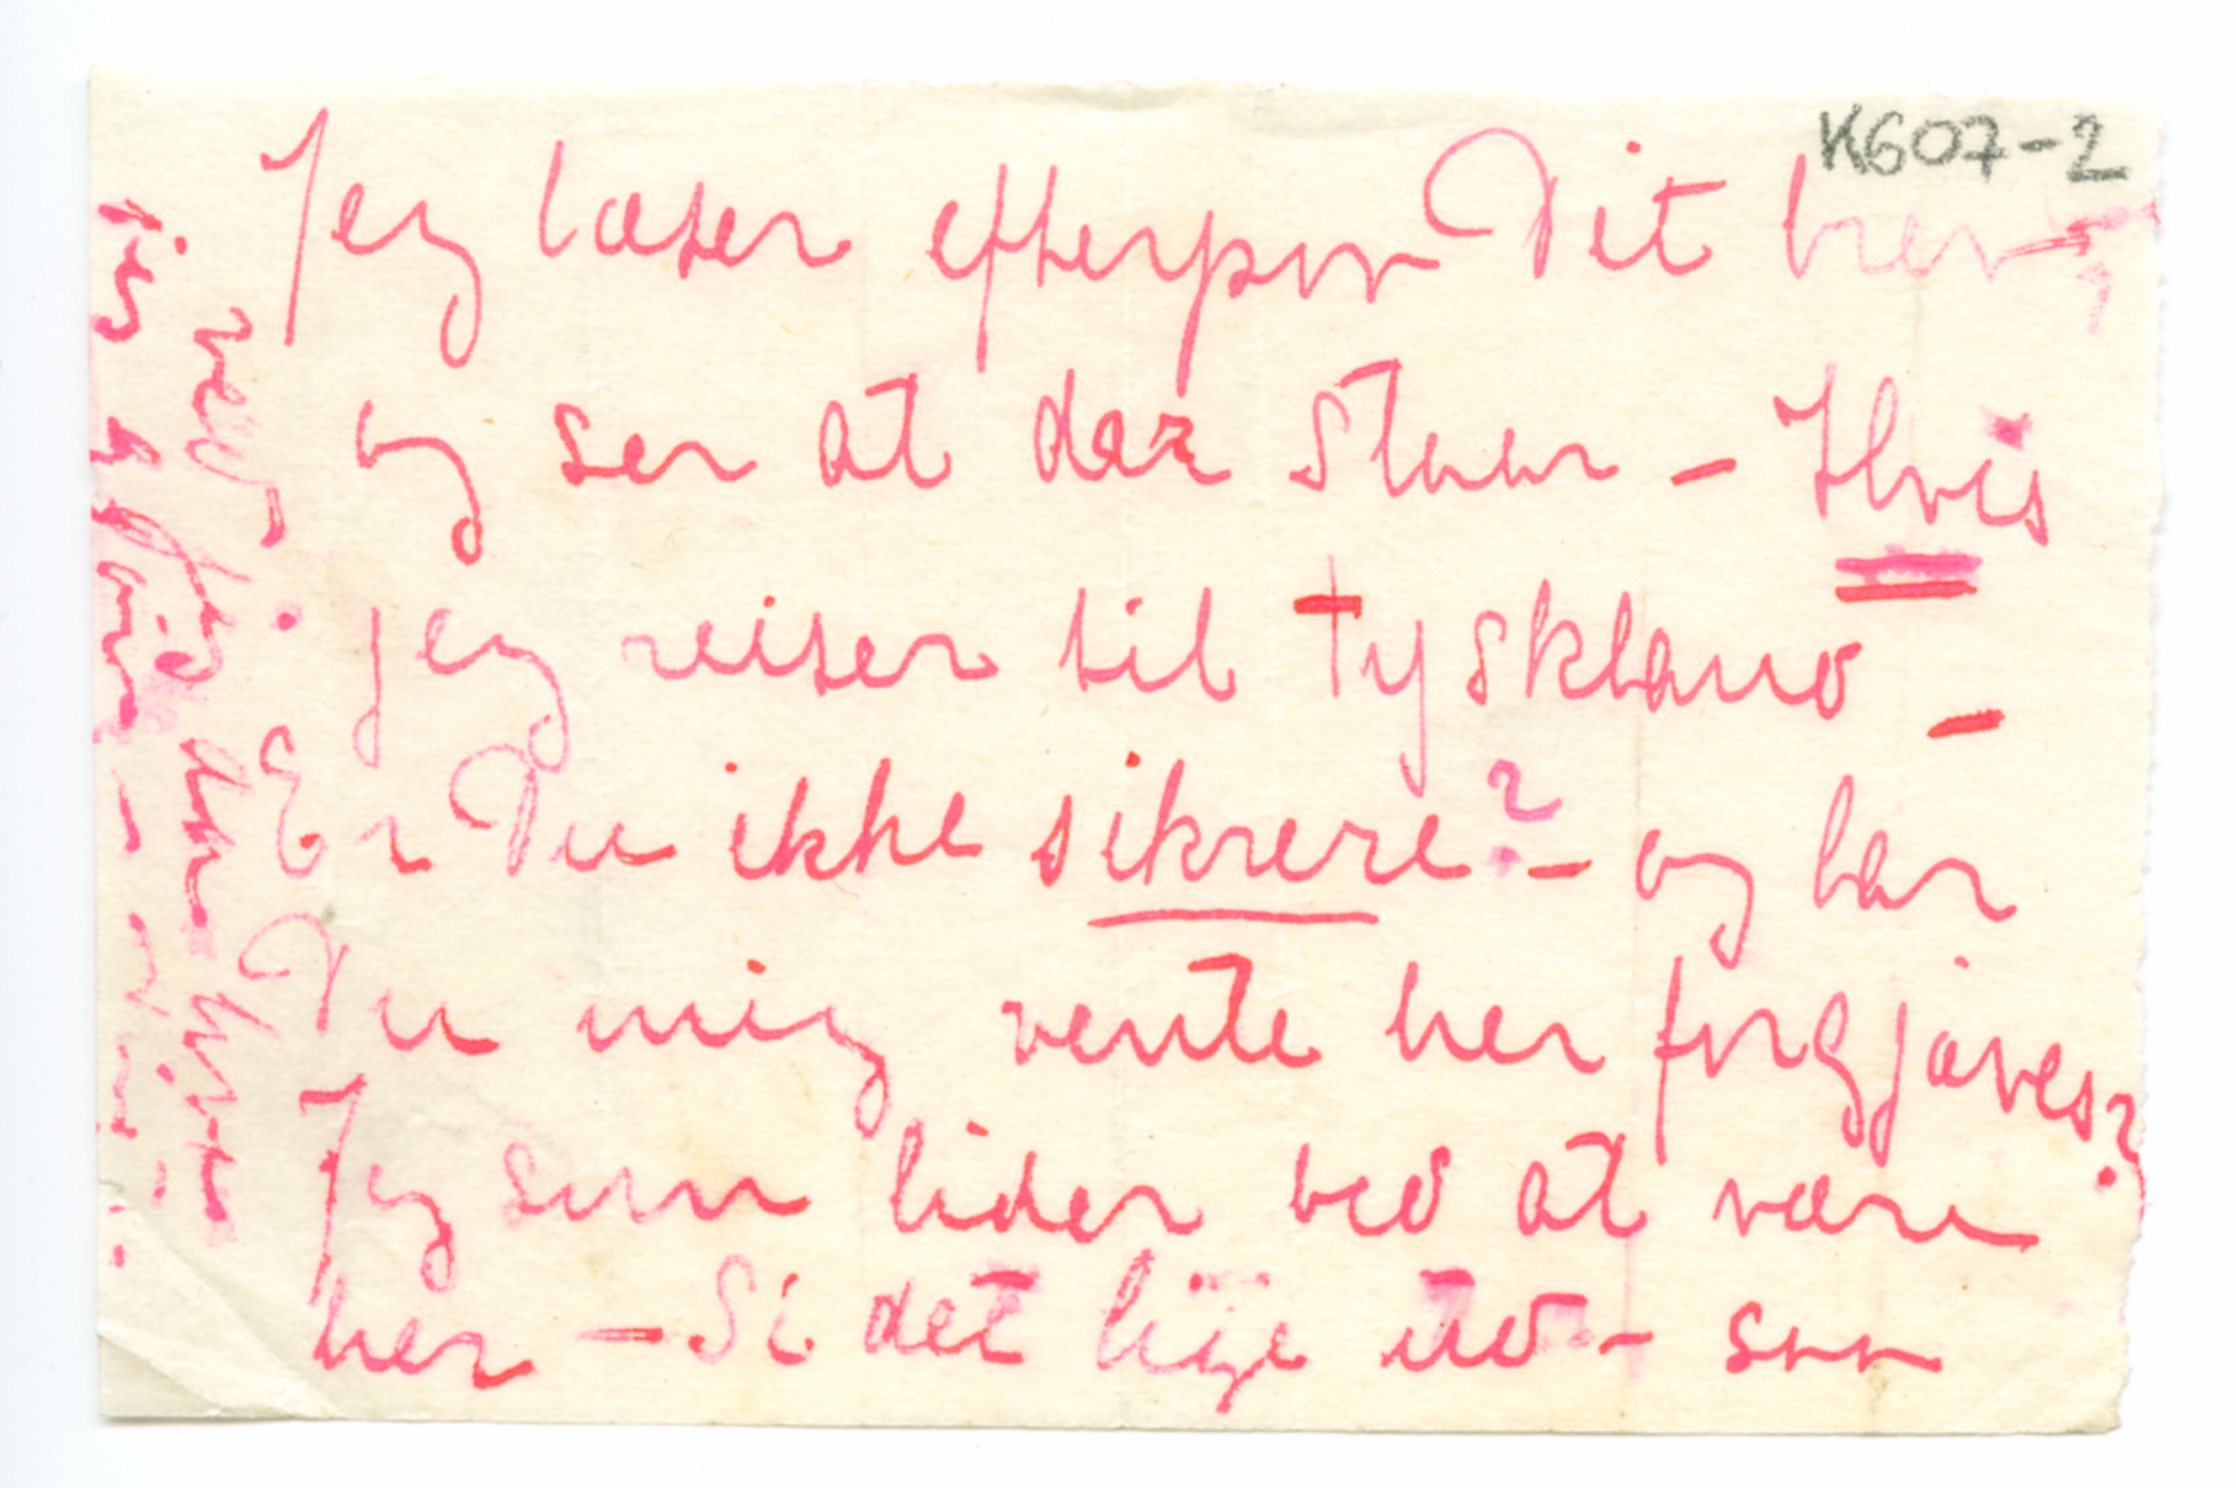 K607-2
Jeg læser efterpaa Dit brev,
og ser at der staar – Hvis
jeg reiser til Tyskland –
Er Du ikke sikrere? – og lar
Du mig vente her forgjæves?
Jeg som lider ved at være
her – Si det lige ud – saa